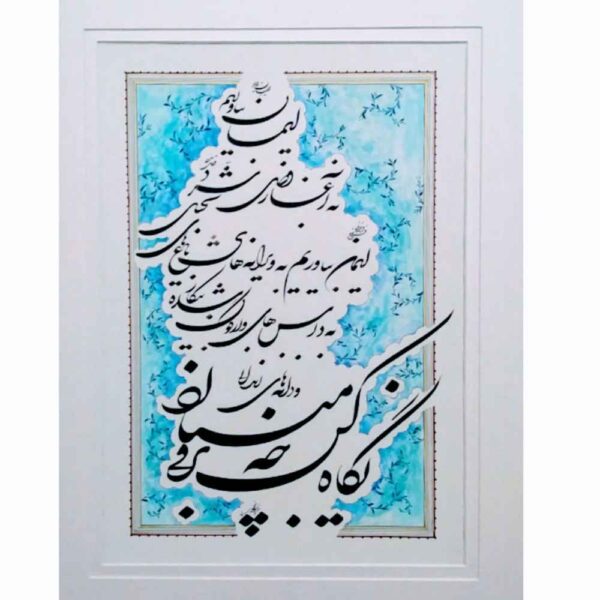 ایمان بیاوریم
به آغاز فصل سرد
ایمان بیاوریم به ویرانه های باغ های تخیل
به داس های واژگون شده بیکار
و دانه های زندانی
نگاه کن که چه برفی میبارد